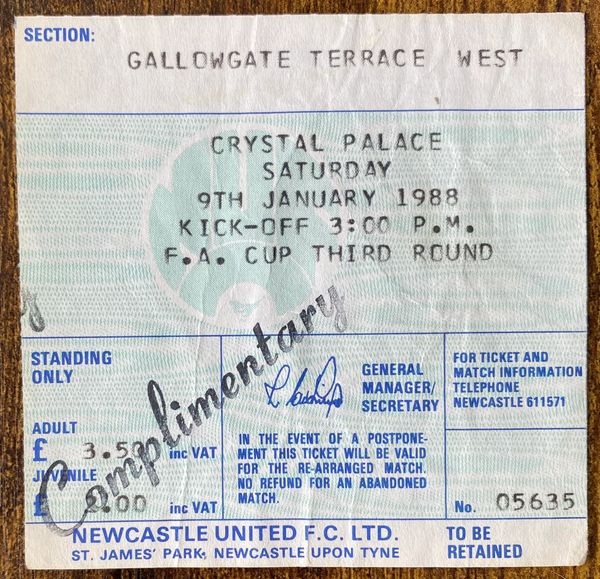 SECTION:
GALLOWGATE TERRACE WEST
CRYSTAL PALACE
SATURDAY
9TH JANUARY 1988
KICK-OFF 3:00 P.M.
F.A. CUP THIRD ROUND
Complimentary
STANDING
ONLY
ADULT
£ 3.50 inc VAT
JUVENILE
£ 2.00 inc VAT
GENERAL
MANAGER/
SECRETARY
IN THE EVENT OF A POSTPONE-
MENT THIS TICKET WILL BE VALID
FOR THE RE-ARRANGED MATCH.
NO REFUND FOR AN ABANDONED
MATCH.
FOR TICKET AND
MATCH INFORMATION
TELEPHONE
NEWCASTLE 611571
No. 05635
NEWCASTLE UNITED F.C. LTD.
ST. JAMES' PARK, NEWCASTLE UPON TYNE
TO BE
RETAINED